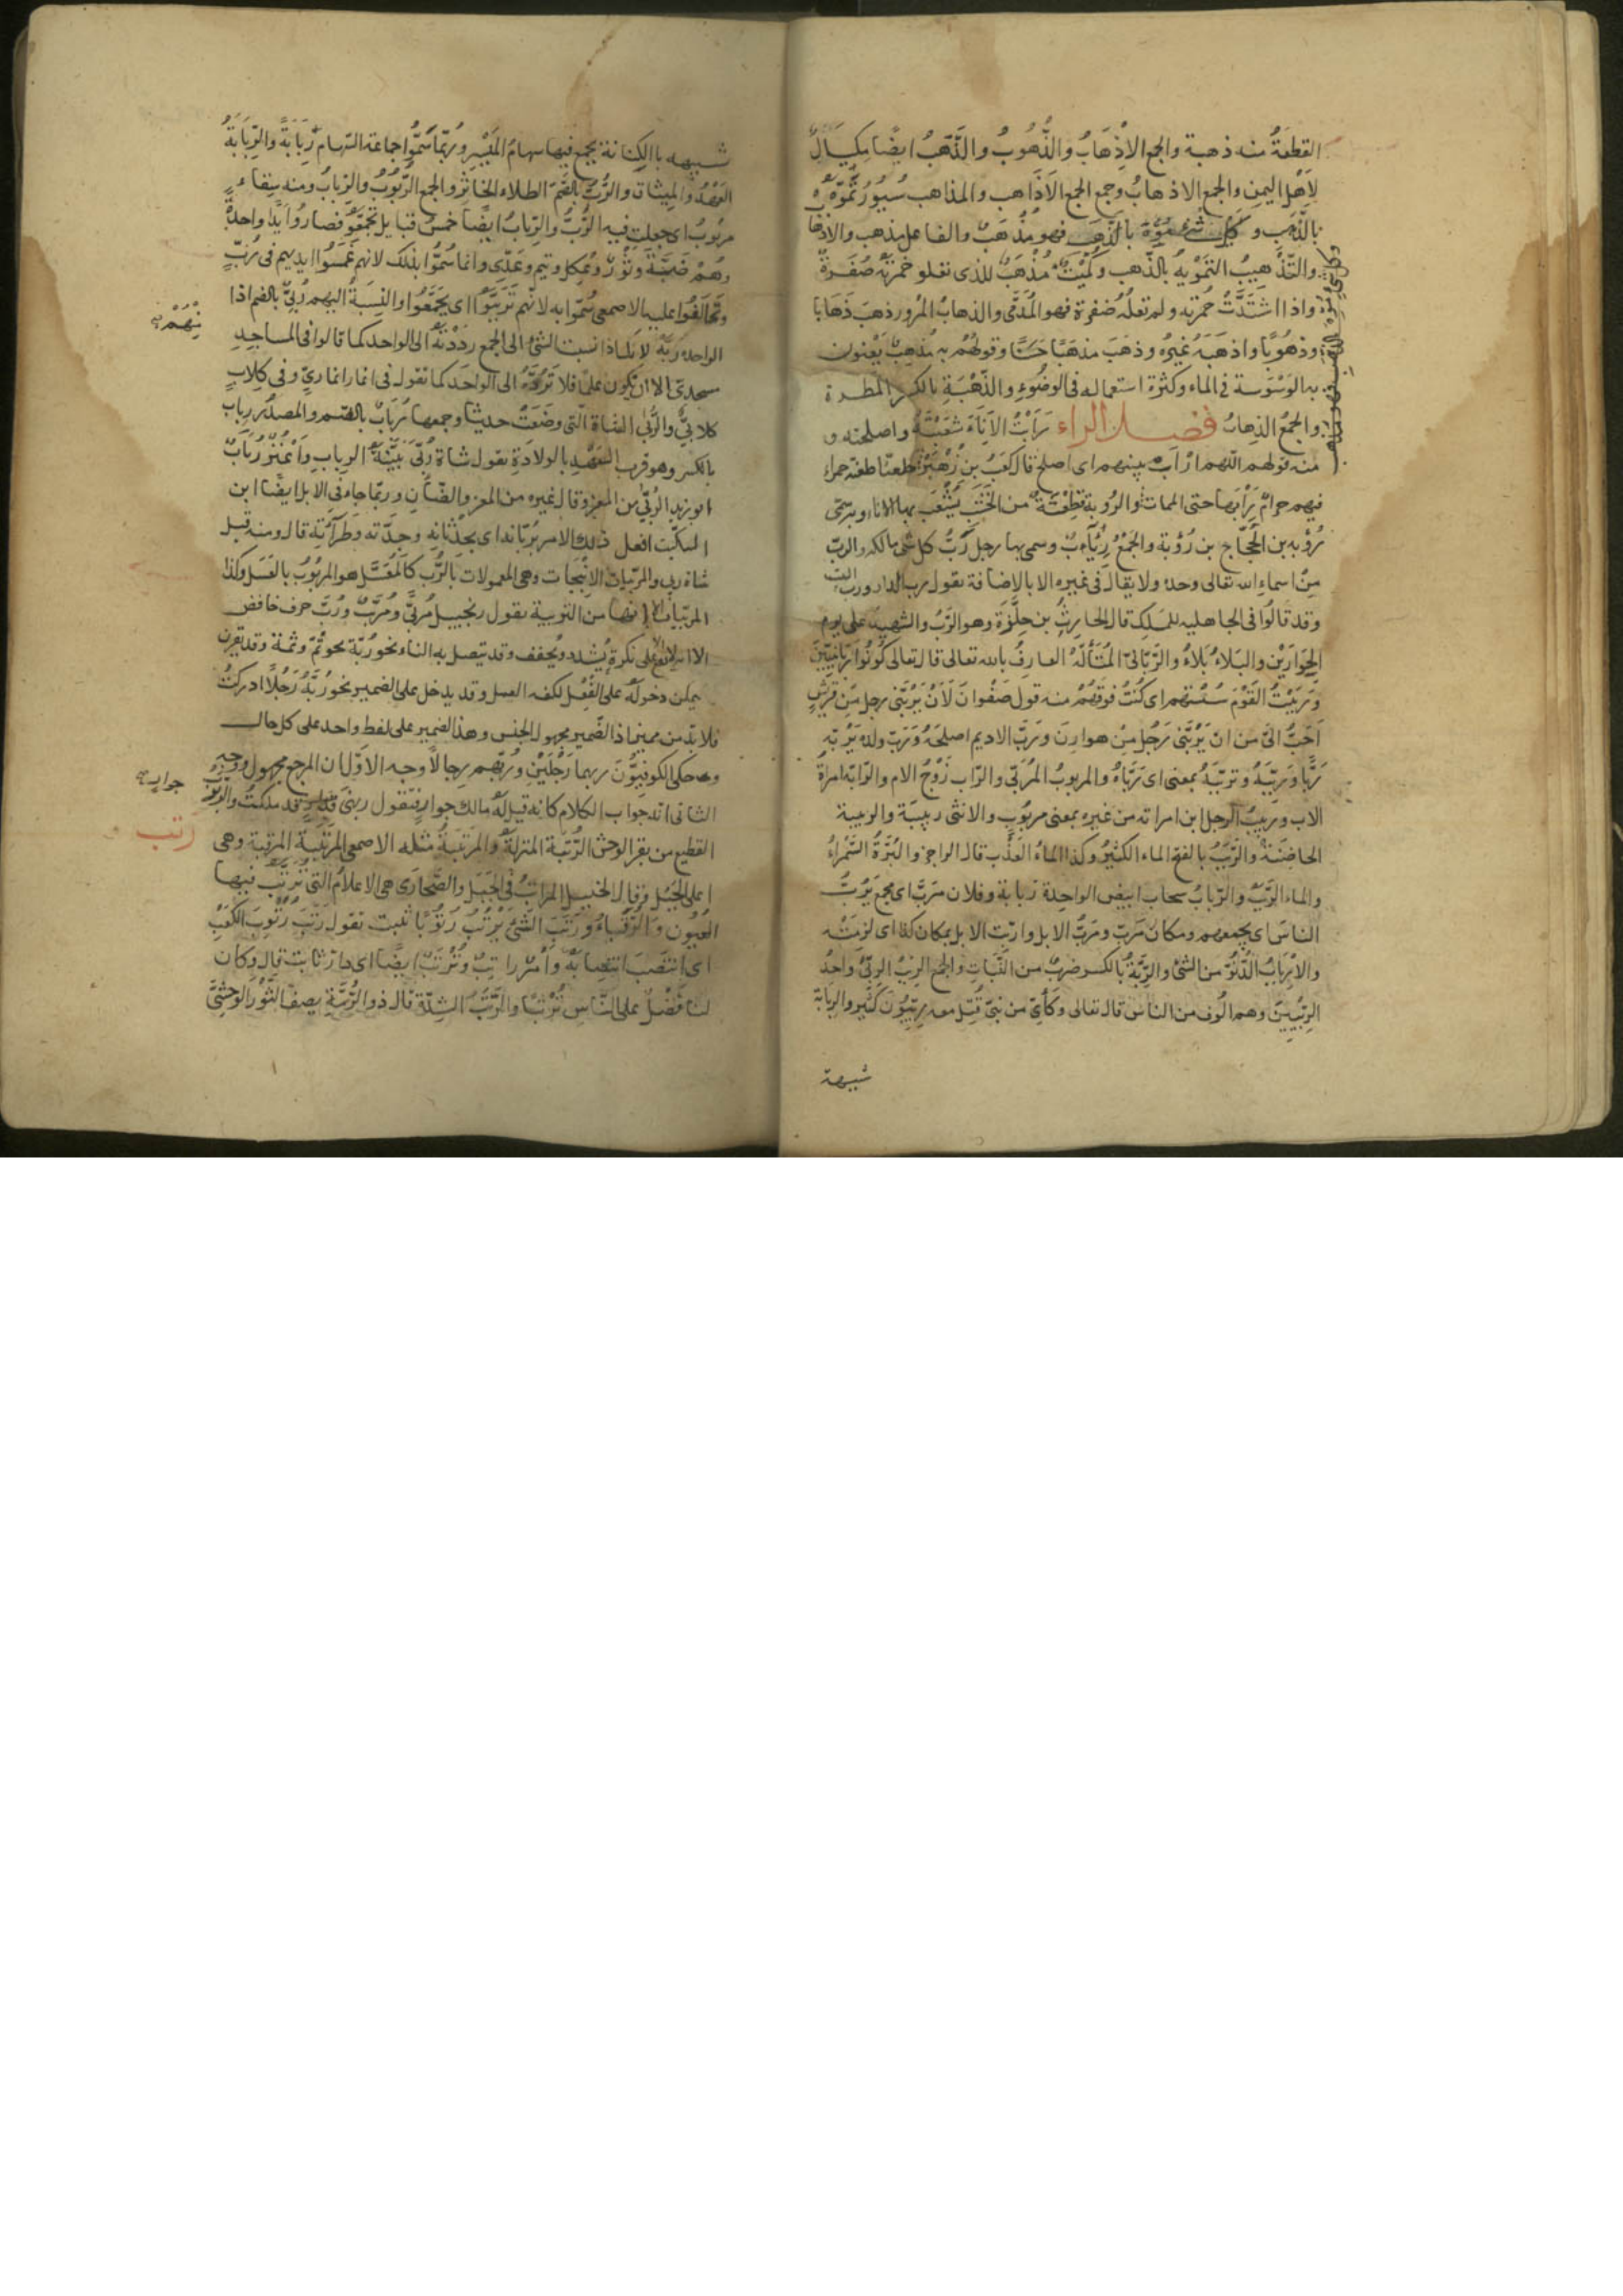 القطعَةُ منه ذهبة والجمع الاِذْهَابُ والذُّهُوبُ والذَّهَبُ ايضًا مِكيَالٌ
لِاَهْلِ اليمنِ والجمع الاذهابُ وجمع الجمع الاَذَاهب والمذاهب سُيُورٌ تُمَوَّهُ
بالذَّهَب وكلّ شئ مُوِّهَ بالذَّهَب فهو مُذْهَبٌ والفاعل مذهب والاذها
والتَّذْهيبُ التمْوِيهُ بالذَّهب وكُمَيْتٌ مُذْهَبٌ للذى تعلو حُمْرتَهُ صُفَرةٌ
واذا اشتَدَّتْ حُمرته ولم تعلُه صُفرة فهو المُدَمَّى والذهابُ المُرُور ذهبَ ذَهَابا
وذهُوبًا واذهَبَهُ غَيرُه وذهَبَ مذهَبًا حسَنًا وقولهُمْ به مُذهِبٌ يَعْنون
به الوَسْوَسة فى الماء وكثرة استعماله فى الوضُوءِ والذِّهْبَةِ بالكسر المَطرة
والجمعُ الذِهابُ فصل الراء رَأَبْتُ الاِنَآءَ شعَبْتَهُ واصلحته و
منه قولهم اللّهم ارْأَبْ بينهم اى اصلح قال كعَبُ بن زُهَيْر طعنّا طعنة حمراء
فيهم حرامٌ رَأبها حتى الممات والرُوبة قطعَةٌ من الخَشَب يُشْعَب بها الاناء وبه سُمّى
رُؤبه بن العجّاج بن رُؤبة والجمْعُ رئَآبٌ وسمى بها رجل رَبُّ كل شئ مالكه والربّ
مِنْ اسماءِ الله تعالى وحده ولا يقال فى غيره الا بالاضافة يقول رب الدار ورب البيت
وقد قالوُا فى الجاهليه للملك قال الحارِثُ بن حِلِّزَة وهو الرّبُّ والشهيدُ على يوم
الحِوارَيْن والبَلاءُ بَلاءُ والرَّبّانىّ المُتألّهُ العارفُ بالله تعالى قال تعالى كُونُوا رَبّانيّينَ
ورَبَبْتُ القَوْمَ سُسْتُهم اى كُنتُ فوقهُمْ منه قول صَفْوان لَاَنْ يَرُبَّنى رجل مِن قُرَيْشٍ
اَحَبُّ الىَّ مِن ان يَرُبَّنى رَجُل مِنْ هوازن وربَّ الاديم اصلحَهُ ورَبّ ولدَه يَرُبّهِ
رَبًّا ورَبَّبَهُ وتربّبَهُ بمعنى اى رَبّاهُ والمربوبُ المُرَبّى والرّاب زَوْجُ الام والرّابّة امراةُ
الاب وربيبُ الرجل ابن امراته من غيره بمعنى مربُوبٍ والانثى ربيبَة والربيبة
الحاضِنَةُ والرَّبَبُ بالفتح الماء الكثيرُ وكذا الماءُ العَذْب قال الراجز والبُرَّةُ السَّمْراءُ
والماء الرَّبَبْ والرّبابُ سحاب ابيض الواحدة ربابة وفلان مَرَبٌّ اى مجمع يَرُبُّ
الناسَ اى يجمعهم ومكان مَرَبّ ومرَبُّ الابل واربّت الابل بمكان كذا اى لزِمَتْه
والاِرْبابُ الدُّنُوّ من الشئ والرِبَّةُ بالكسر ضربٌ من النّبَاتِ والجمع الرِبَبُ الرِبّىُّ واحدُ
الرِبّيِيّن وهم الُوف من الناس قال تعالى وكَاَيّن من نبىّ قُتِل معه رِبّيُّونَ كثير والرِبابة
شبيهة
شبيهه بالكِنانة يجمع فيها سهامُ المَيْسِر ورُبّما سَمَّوا جماعة السّهام رِبَابَةً والرِّبَابَةُ
العَهْدُ والمِيثاق والرُّبّ بالضّمّ الطلاء الخاثِرُ والجمع الرُّبُوبُ والرِبابُ ومنه سِقاء
مربُوبٌ اى جعلت فيه الرُّبَّ والرِّبابُ ايضًا خمسُ قبايل تجمّعَوُ فصارُوا يَدًا واحدةً
وهُمْ ضَبّةَ وثَوْرٌ وعُكل وتيم وعَدِّى وانما سُمُّوا بذلك لانهم غَمَسُوا ايديهم فى رُبّ
وتَحَالَفُوا عليه الاصمعى سُمّوا به لانهم تَرَبَّبَوُا اى تجَمَّعُوا والنِسْبَةُ اليهم رُبِّىٌّ بالضم اذا
الواحد رُبَّةٌ لانك اذا نسبت الشئ الى الجمع ردَدْتهُ الى الواحد كما قالوا فى المساجِدِ
مسجدىّ الا ان يَّكون علمًا فلا تَرُدّهُ الى الواحَد كما تقول فى انمار انمارىّ وفى كِلابٍ
كلابىٌّ والرُّبَّى الشاة الّتى وضَعَتْ حديثا وجمعها رُبَابٌ بالضم والمصدُر رِبابٌ
بالكسر وهو قرب العَهْدِ بالولادَةِ تقول شاة رُبّى بَيّنَةُ الرِبابِ واَعْنُزٌ رُبَابٌ
ابو زيد الرُبّى من المعز وقال غيره من المعز والضّأنِ وربّما جاء فى الابل ايضًا ابن
السكّيت افعل ذلك الامر بُربّانه اى بحدْثانِه وجِدّته وطَرآءَته قال ومنه قيل
شاة ربى والمربّبات الانبجات وهى المعمولات بالرُّب كالمُعَسَّل هو المربُوبُ بالعَسَل وكذا
المربّيات الا انها من التربية يقول زنجبيل مُربَّى ومُرَبَّبٌ ورُبّ حرف خافض
الا انه لايقع على نكرة يُشدد ويُخفف وقد تتصل به التاء نحو رُبّة نحو ثُمّ وثمة وقد يقرن
يمكن دخولهُ على الفِعْل لكفه العمل وقد يدخل على الضمير نحو رُبَّهُ رَجُلًا ادركتُ
فلابدّ من مميز اذ الضَمير مجهول الجنس وهذا الضمير على لفظ واحد على كل حال
وقد حكى الكوفيّوُنَ ربهما رَجُلَيْنِ ورُبّهم رِجالًا وجه الاوّل ان المرجع مجهول ووجه
الثانى انه جواب الكلام كانه قيل لهُ مالك جوارٍ فتقول ربهنّ قد ملكتُ والربْرَبُ
القطيع من بقر الوحش الرُّتبَة المنزلةُ والمرتبَةُ مثله الاصمعى المَرْتَبَةُ المرقبة وهى
اعلى الجَبَل وقال الخليل المراتبُ فى الجَبَل والصَّحَارَى هى الاعلام التى تُرَتّبُ فيها
العُيُون والرُّقَبَاءُ ورَتَبَ الشَئ يَرْتُبُ رُتُوبًا ثبت تقول رَتَبَ رُتُوبَ الكَعْبِ
اى انتصَبَ انتِصَابَهُ وامْرٌ راتِبٌ وتُرْتَبٌ ايضًا اى دارٌ ثابت قال وكان
لنا فَضْلٌ على النّاسِ تُرْتَبًا والرَّتَبُ الشِدّة قال ذو الرُّمّةِ يصف الثَّوْرَ الوَحشِىَّ
مِنْهُمْ
جواب
رتب